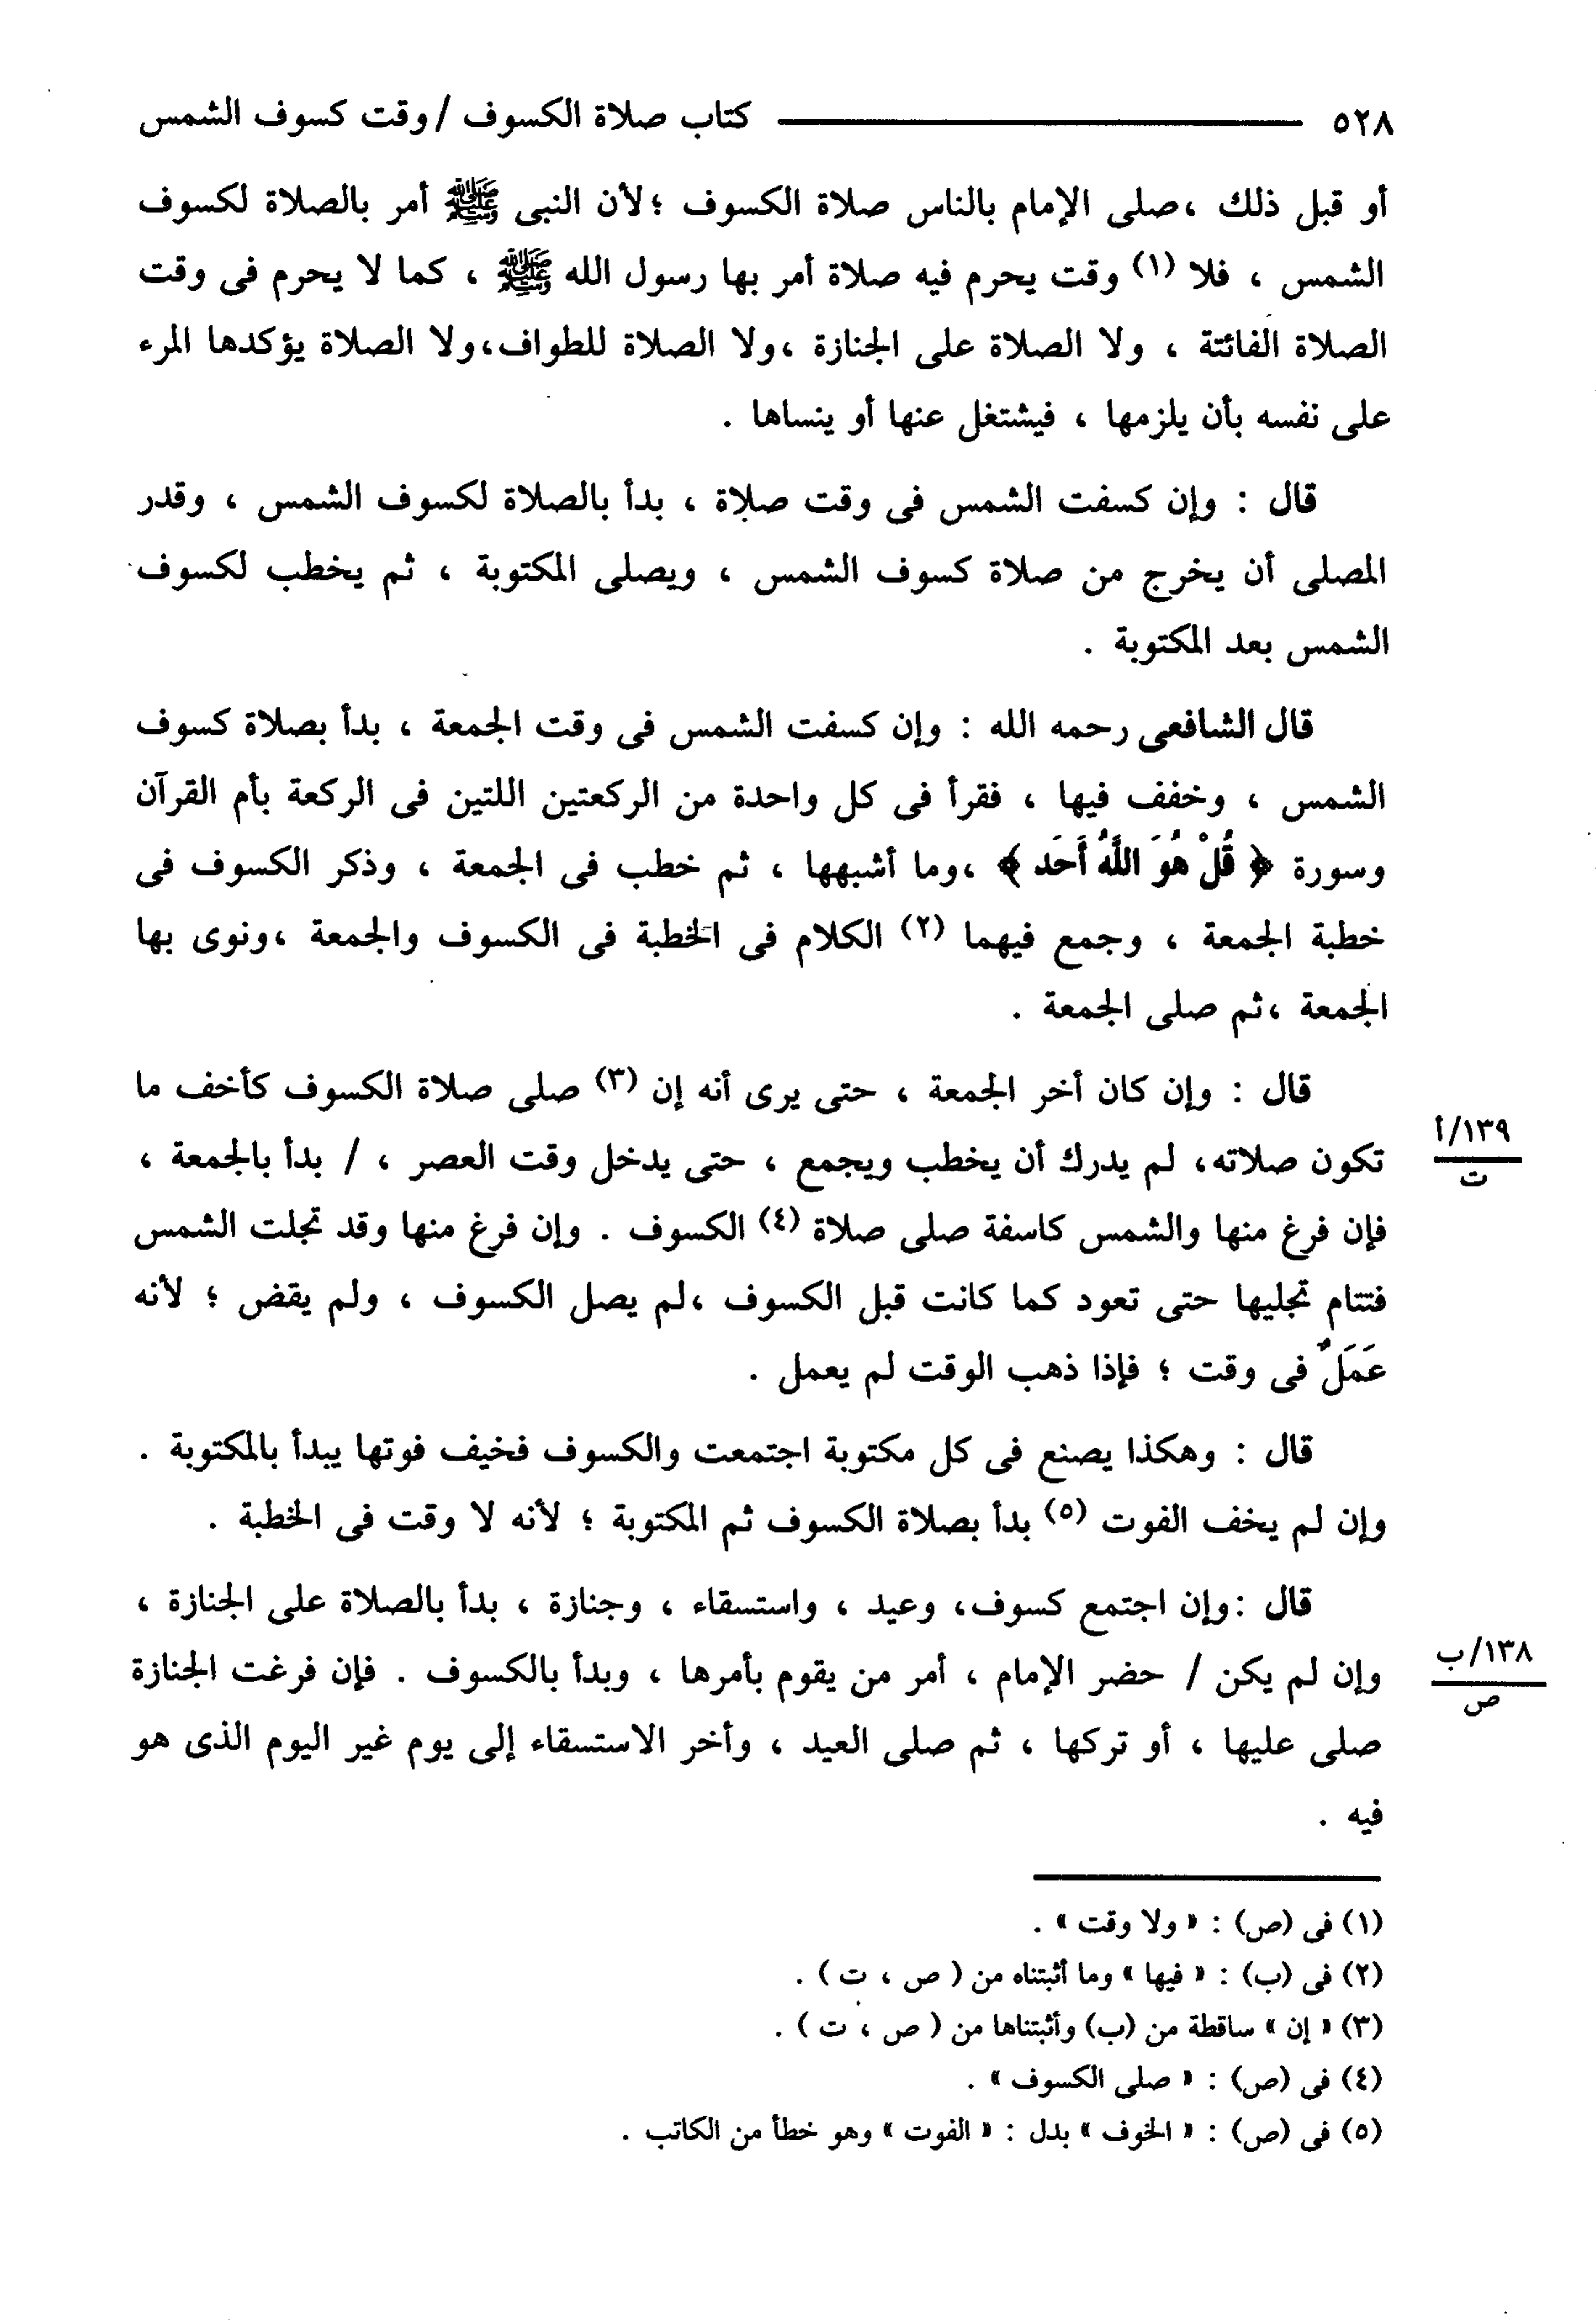 ٥٢٨ ــــــــــــــــــــ كتاب صلاة الكسوف / وقت كسوف الشمس
أو قبل ذلك ،صلى الإمام بالناس صلاة الكسوف ؛لأن النبى ﷺ أمر بالصلاة لكسوف
الشمس ، فلا (١) وقت يحرم فيه صلاة أمر بها رسول الله ﷺ ، كما لا يحرم فى وقت
الصلاة الفائتة ، ولا الصلاة على الجنازة ،ولا الصلاة للطواف،ولا الصلاة يؤكدها المرء
على نفسه بأن يلزمها ، فيشتغل عنها أو ينساها .
قال : وإن كسفت الشمس فى وقت صلاة ، بدأ بالصلاة لكسوف الشمس ، وقدر
المصلى أن يخرج من صلاة كسوف الشمس ، ويصلى المكتوبة ، ثم يخطب لكسوف
الشمس بعد المكتوبة .
قال الشافعى رحمه الله : وإن كسفت الشمس فى وقت الجمعة ، بدأ بصلاة كسوف
الشمس ، وخفف فيها ، فقرأ فى كل واحدة من الركعتين اللتين فى الركعة بأم القرآن
وسورة ﴿ قُلْ هُوَ اللَّهُ أَحَد ﴾ ،وما أشبهها ، ثم خطب فى الجمعة ، وذكر الكسوف فى
خطبة الجمعة ، وجمع فيهما (٢) الكلام فى الخطبة فى الكسوف والجمعة ،ونوى بها
الجمعة ،ثم صلى الجمعة .
قال : وإن كان أخر الجمعة ، حتى يرى أنه إن (٣) صلى صلاة الكسوف كأخف ما
تكون صلاته، لم يدرك أن يخطب ويجمع ، حتى يدخل وقت العصر ، / بدأ بالجمعة ،
١٣٩/أ
ت
فإن فرغ منها والشمس كاسفة صلى صلاة (٤) الكسوف . وإن فرغ منها وقد تجلت الشمس
فتتام تجليها حتى تعود كما كانت قبل الكسوف ،لم يصل الكسوف ، ولم يقض ؛ لأنه
عَمَلٌ فى وقت ؛ فإذا ذهب الوقت لم يعمل .
قال : وهكذا يصنع فى كل مكتوبة اجتمعت والكسوف فخيف فوتها يبدأ بالمكتوبة .
وإن لم يخف الفوت (٥) بدأ بصلاة الكسوف ثم المكتوبة ؛ لأنه لا وقت فى الخطبة .
قال :وإن اجتمع كسوف، وعيد ، واستسقاء ، وجنازة ، بدأ بالصلاة على الجنازة ،
وإن لم يكن / حضر الإمام ، أمر من يقوم بأمرها ، وبدأ بالكسوف . فإن فرغت الجنازة
١٣٨/ب
ص
صلى عليها ، أو تركها ، ثم صلى العيد ، وأخر الاستسقاء إلى يوم غير اليوم الذى هو
فيه .
(١) فى (ص) : « ولا وقت » .
(٢) فى (ب) : « فيها » وما أثبتناه من ( ص ، ت ) .
(٣) « إن » ساقطة من (ب) وأثبتناها من ( ص ، ت ) .
(٤) فى (ص) : « صلى الكسوف » .
(٥) فى (ص) : « الخوف » بدل : « الفوت » وهو خطأ من الكاتب .